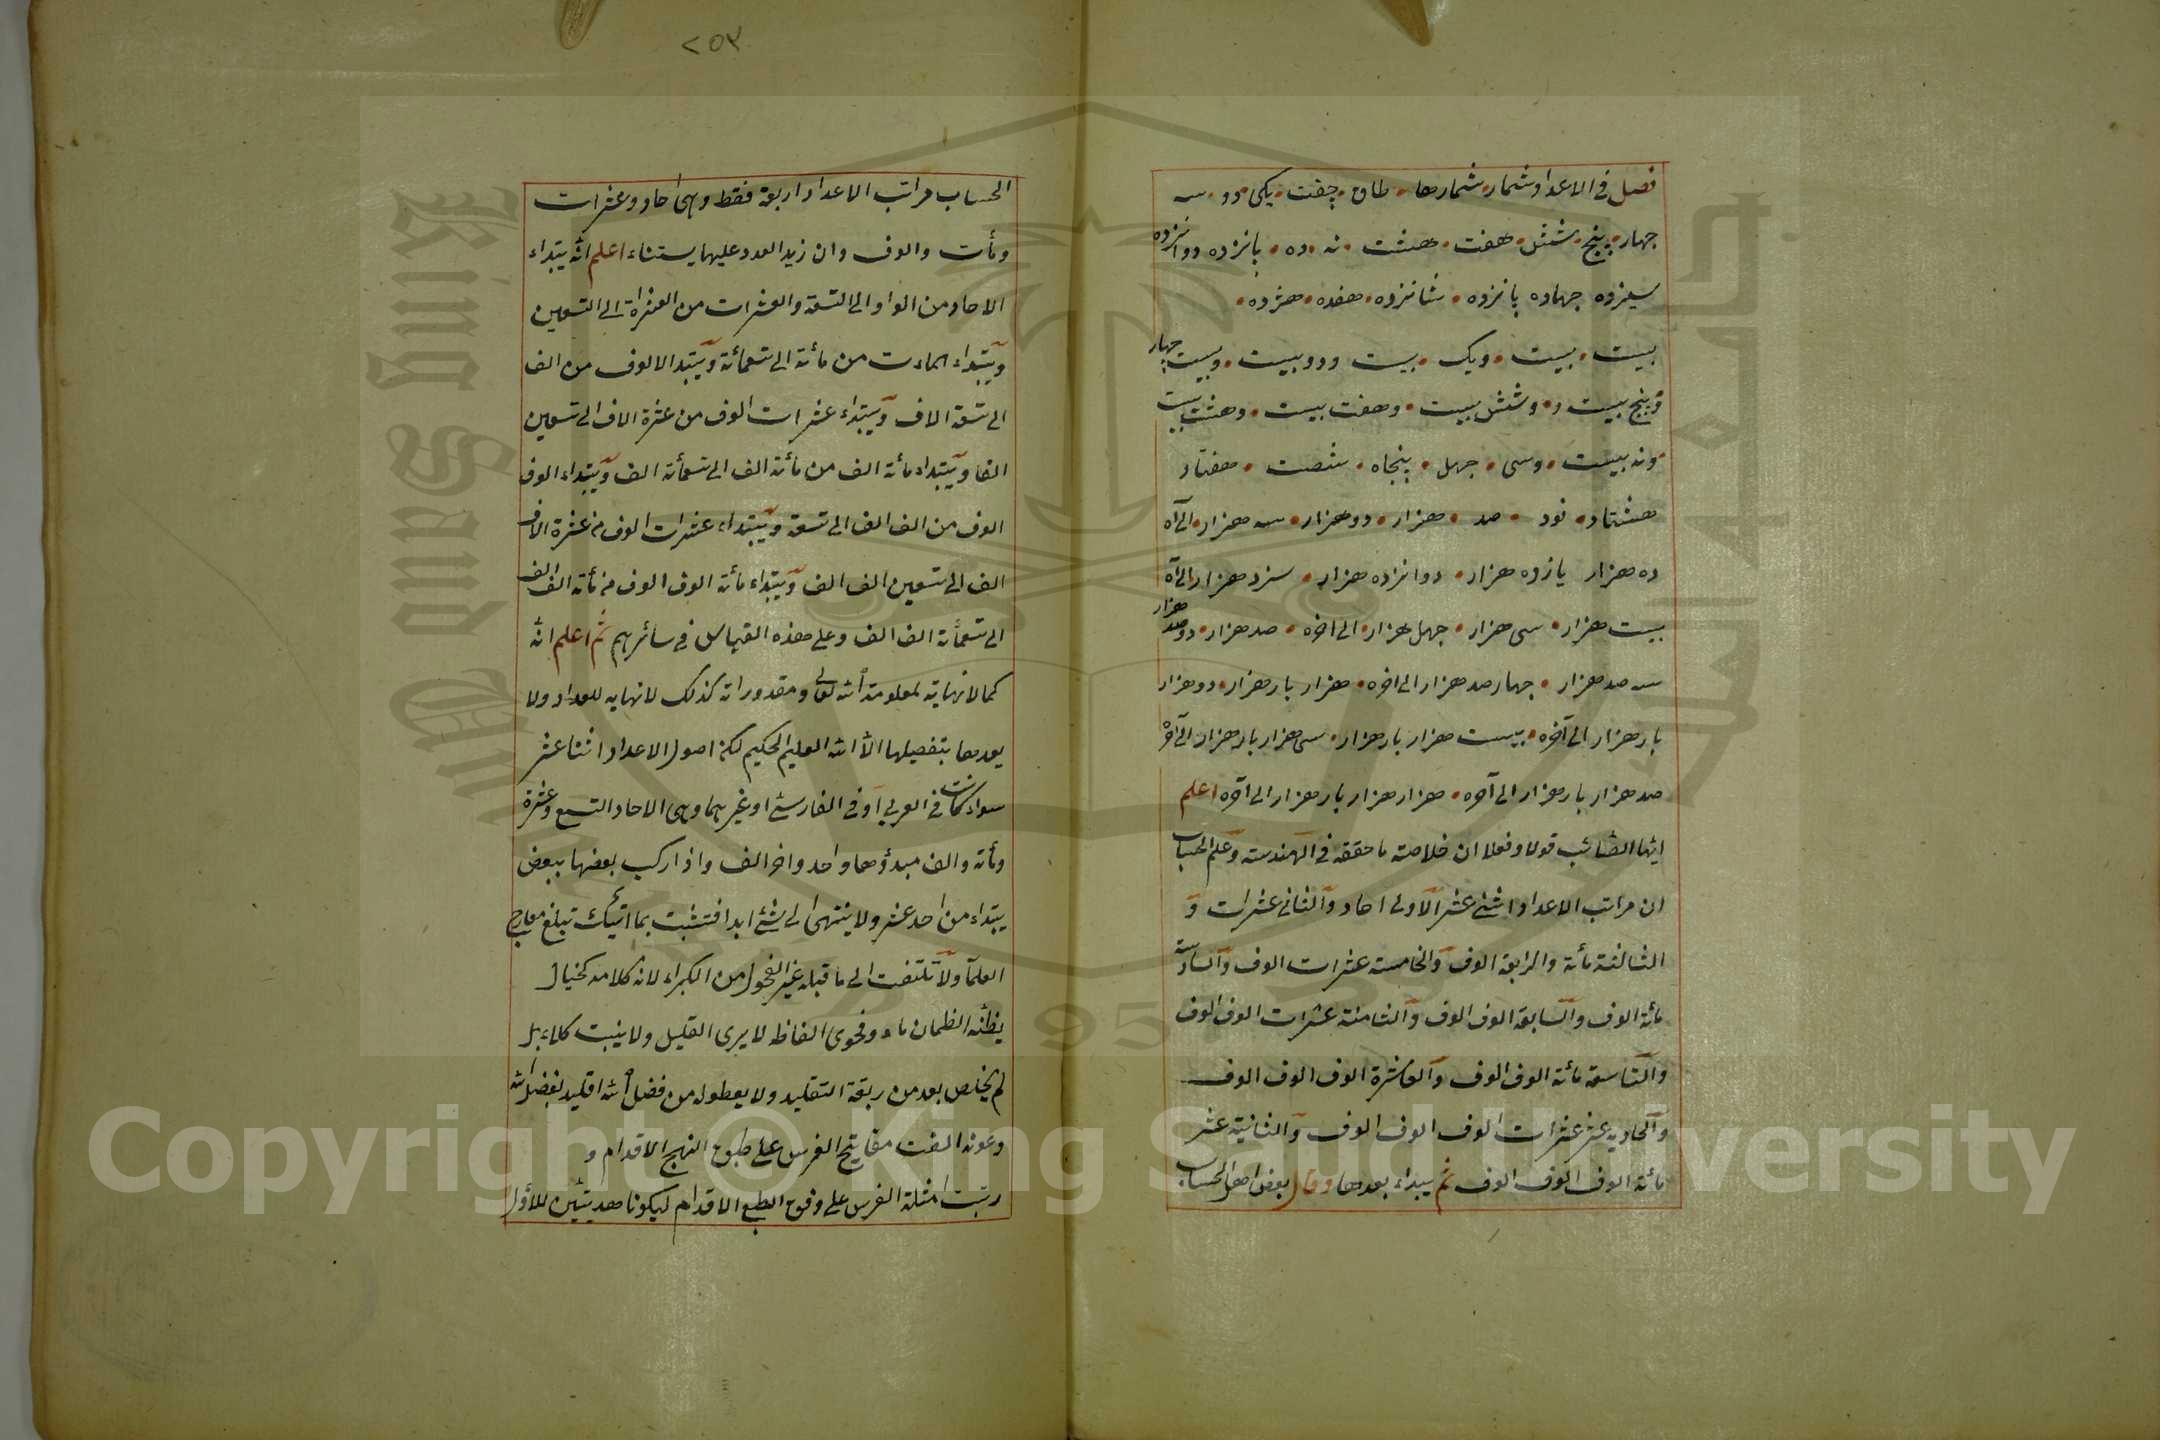 فصل في الاعداد شمار شمارها طاق جفت يكى دو سه
چهار پنج شش هفت هشت نه ده يانزده دوانزده
سيزده چهارده پانزده شانزده هفده هژده
بيست بيست ويك بيست ودو بيست وبيست چهار
وپنج بيست و وشش بيست وهفت بيست وهشت بيست
ونه بيست وسى چهل پنجاه شصت هفتاد
هشتاد نود صد هزار دو هزار سه هزار الى آه
ده هزار يازده هزار دوانزده هزار سيزد هزار الى آه
بيست هزار سى هزار چهل هزار الى اخره صد هزار دو صد هزار
سه صد هزار چهار صد هزار الى اخره هزار بار هزار دو هزار
بار هزار الى آخره بيست هزار بار هزار سى هزار بار هزار الى آخره
صد هزار بار هزار الى آخره هزار هزار بار هزار الى آخره اعلم
ايها قولا وفعلا ان خلاصة ما حققه في الهندسة وعلم الحساب
ان مراتب الاعداد اثنى عشر الاولى احاد والثاني عشرات و
الثالثة مائة والرابعة الوف والخامسة عشرات الوف والسادسة
مائة الوف والسابعة الوف الوف والثامنة عشرات الوف الوف
والتاسعة مائة الوف الوف والعاشرة الوف الوف الوف
والحادية عشر عشرات الوف الوف الوف والثانية عشر
مائة الوف الوف الوف ثم يبداء بعدها وقال بعض اهل الحساب
٢٥٣
الحساب مراتب الاعداد اربعة فقط وهى احاد وعشرات
ومأت والوف وان زيد العدد عليها يستثناء اعلم انه يبتداء
الاحاد من الواحد الى التسعة والعشرات من العشرة الى التسعين
ويبتداء المات من مائة الى تسعمائة ويبتدا الالوف من الف
الى تسعة الاف ويبتداء عشرات الوف من عشرة الاف الى تسعين
الفا ويبتداء مائة الف من مائة الف الى تسعمأئة الف ويبتداء الوف
الوف من الف الف الى تسعة ويبتداء عشرات الوف من عشرة الاف
الف الى تسعين الف الف ويبتداء مائة الوف الوف من مائة الف الف
الى تسعمأئة الف الف وعلى هذه القياس في سائرهم ثم اعلم انه
كما لا نهاية لمعلومة الله تعالى ومقدوراته كذلك لا نهاية للعداد ولا
يعدها بتفصيلها الا الله العليم الحكيم لكن اصول الاعداد اثنا عشر
سواء كانت في العربي او في الفارسي او غيرهما وهي الاحاد التسع وعشرة
ومأئة والف مبدؤها واحد واخر الف واذا ركب بعضها ببعض
يبتداء من احد عشر ولا ينتهى الى شئ ابدا فتشبث بما اتيتك تبلغ معارج
العلمآ ولا تلتفت الى ما قبله غير الفحول من الكبراء لانه كلامه كخيال
يظنه الظمان ماء وفحوى الفاظه لا يرى القليل ولا ينبت كلاء بل
لم يخلص بعد من ربقة التقليد ولا يعطوله من فضل الله اقليد بفضل الله
وعونه الفت مفاتيح الفرس على طبق النهج الاقدام و
رتبت امثلة الفرس على وفق الطبع الاقدام ليكونا هديتين للاؤل
King Saud University
1957
Copyright © King Saud University